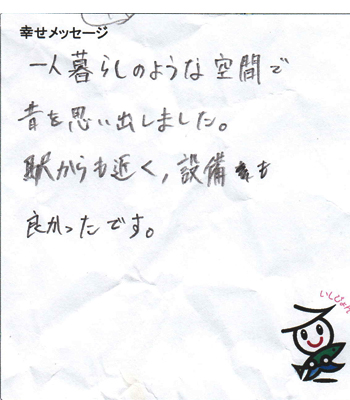 幸せメッセージ
一人暮らしのような空間で
昔を思い出しました。
駅からも近く,設備も
良かったです。